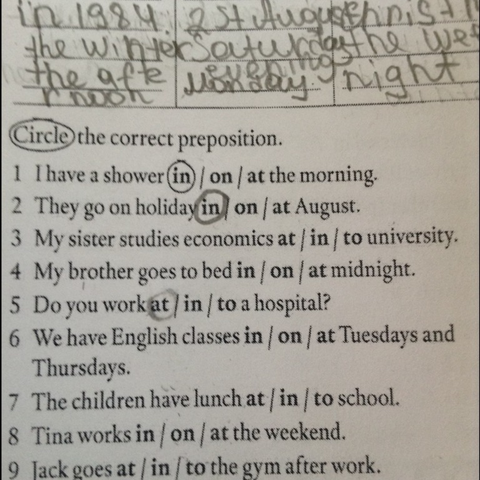 in 1984. 21st August Christm
the winter Saturday the wee
the afte evening
rnoon Monday night
Circle the correct preposition.
1 I have a shower in / on / at the morning.
2 They go on holiday in / on / at August.
3 My sister studies economics at / in / to university.
4 My brother goes to bed in / on / at midnight.
5 Do you work at / in / to a hospital?
6 We have English classes in / on / at Tuesdays and
Thursdays.
7 The children have lunch at / in / to school.
8 Tina works in / on / at the weekend.
9 Jack goes at / in / to the gym after work.